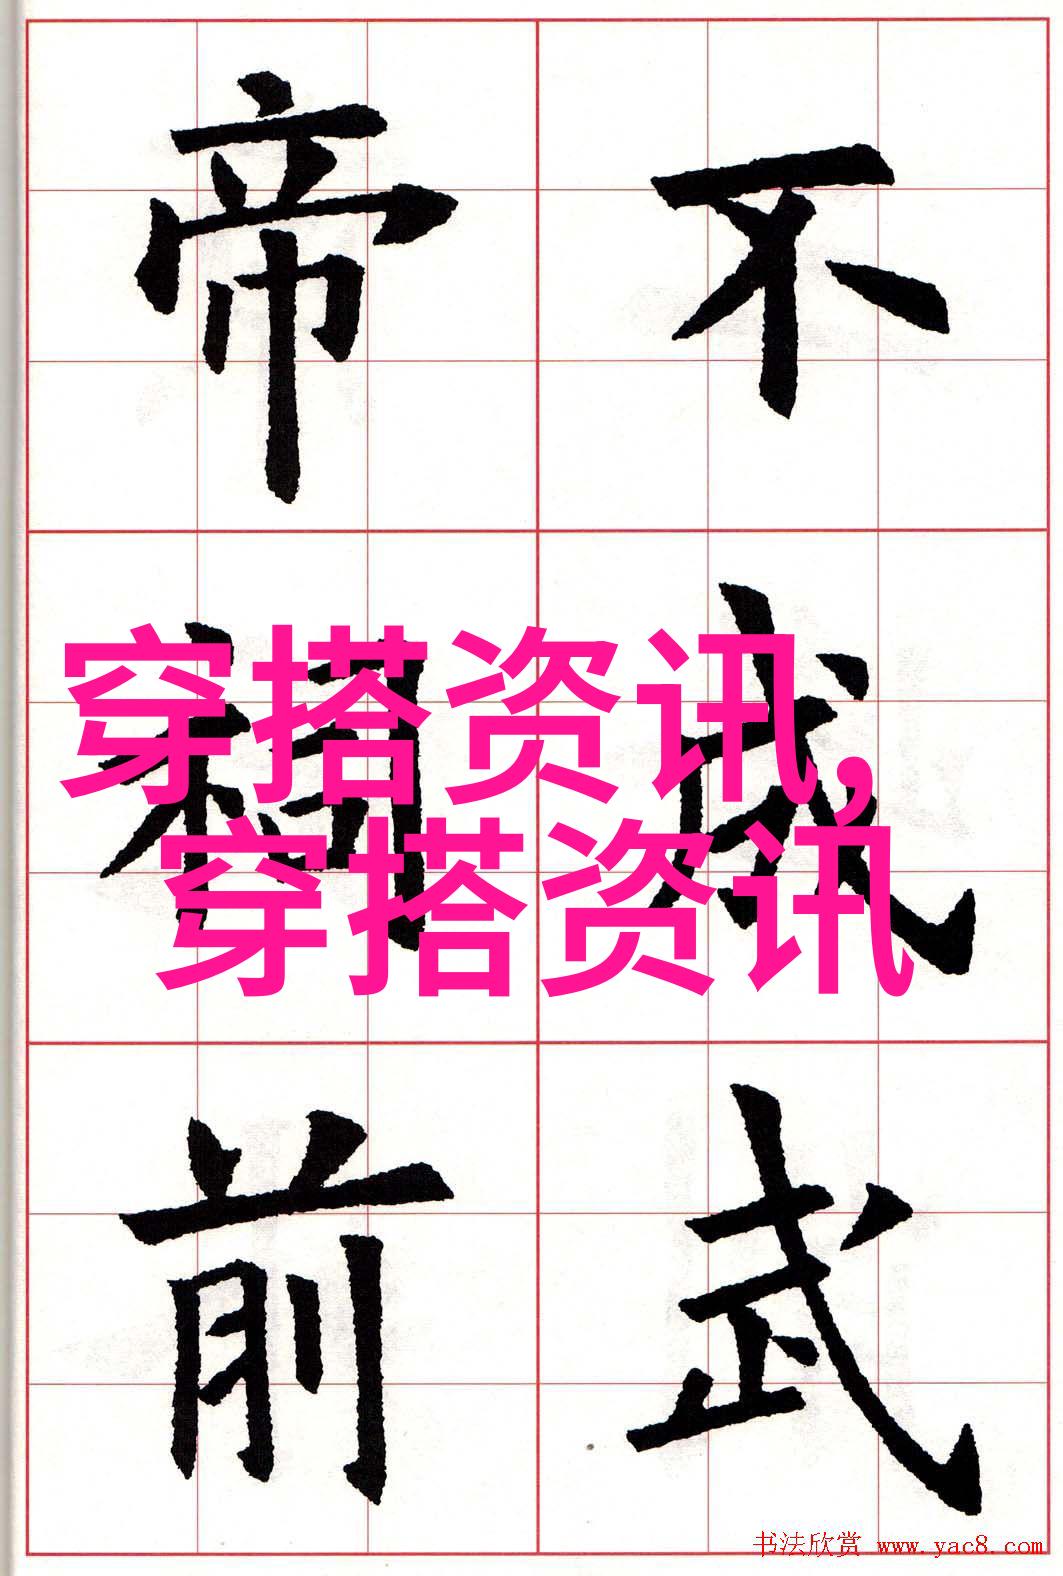 不成武
帝祠前
穿搭资讯,
穿搭资讯
书法欣赏 www.yac8.com